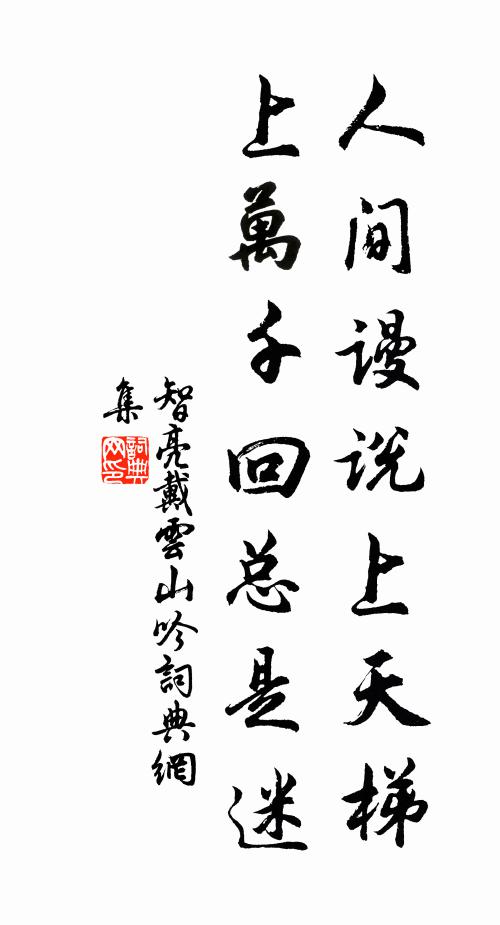 人间谩说上天梯
上萬千回总是迷
智亮戴雲山吟詞典網
集
詞典網印